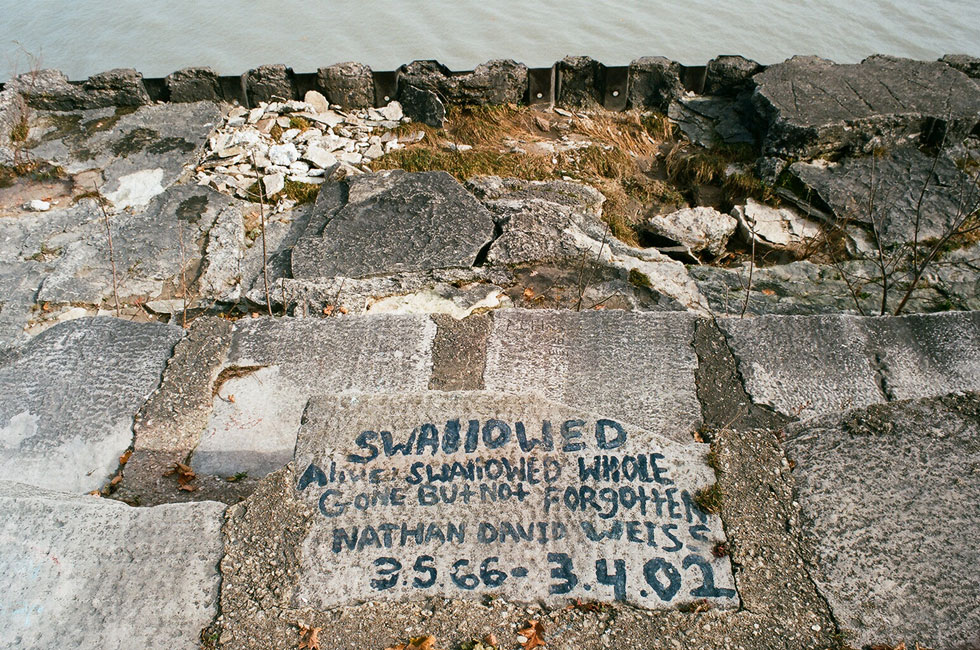 SWALLOWED
Alive: SWALLOWED WHOLE
GONE BUt NOt FORGOTTEN
NATHAN DAVID WEISS
3.5 66 - 3.4.02